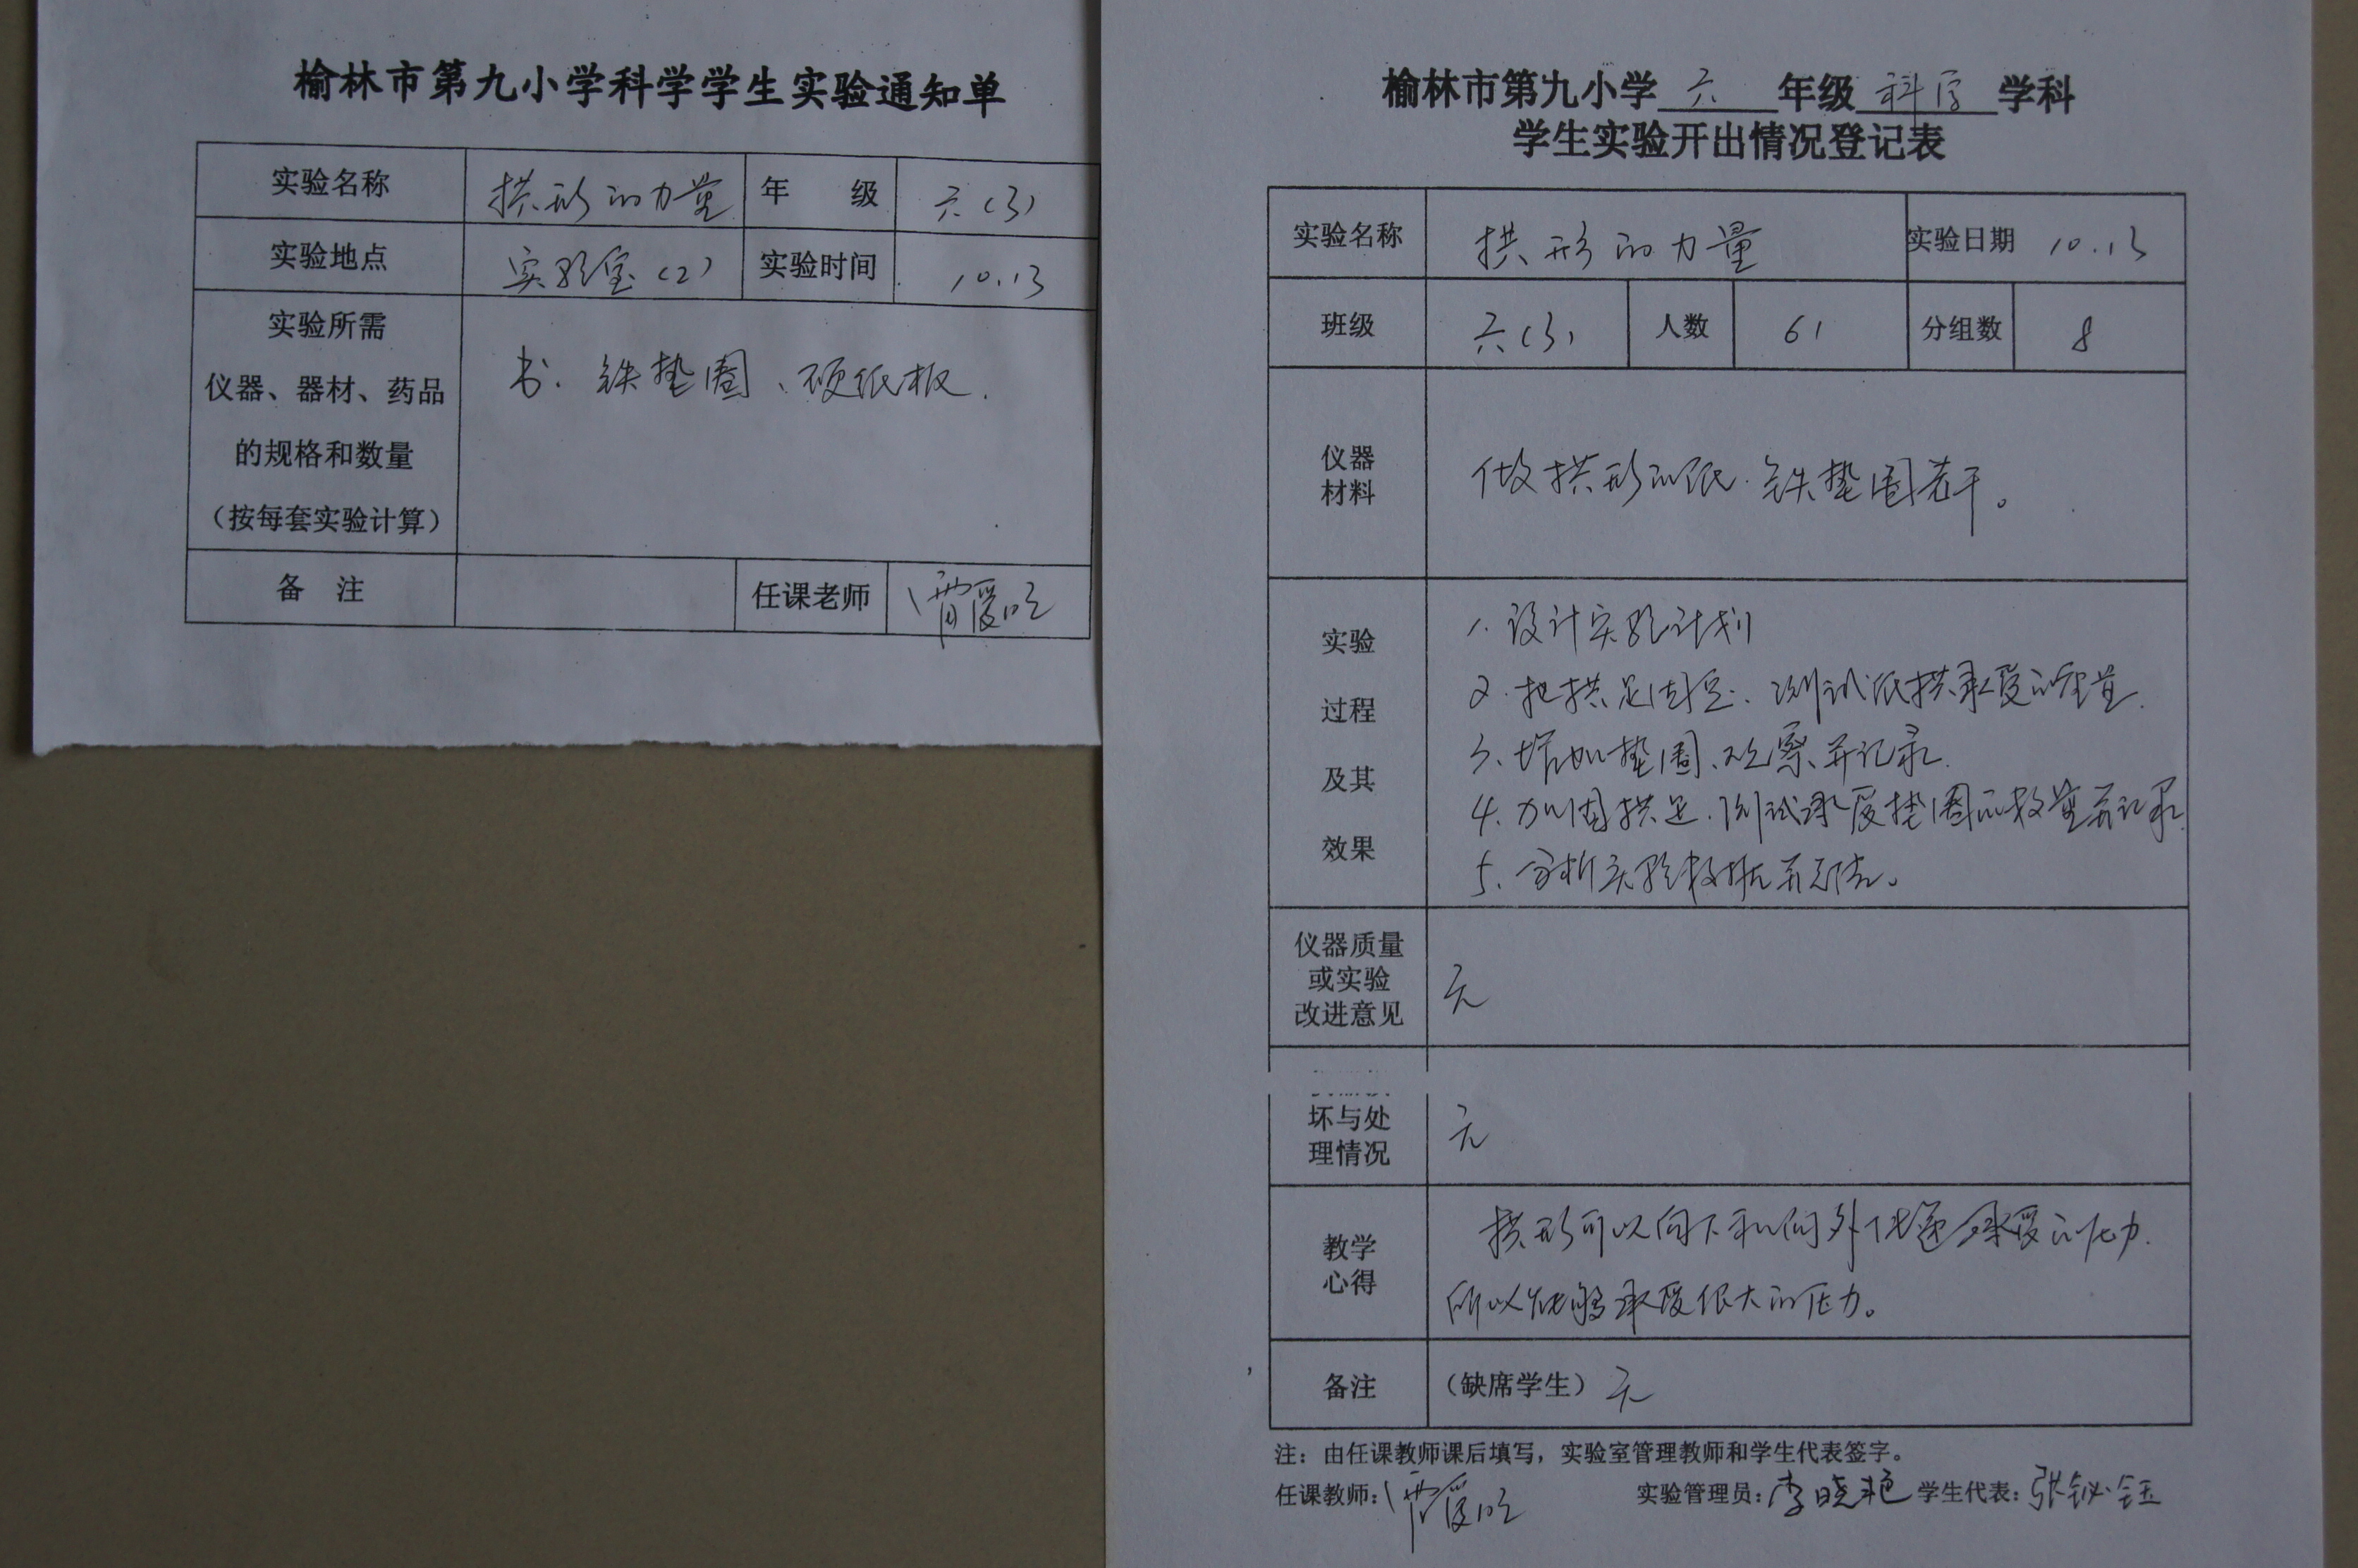 榆林市第九小学科学学生实验通知单
实验名称 拱形的力量 年 级 六(3)
实验地点 实验室(2) 实验时间 10.13
实验所需
仪器、器材、药品
的规格和数量
(按每套实验计算)
书、铁垫圈、硬纸板.
备 注 任课老师 贾
榆林市第九小学 六 年级 科学 学科
学生实验开出情况登记表
实验名称 拱形的力量 实验日期 10.13
班级 六(3) 人数 61 分组数 8
仪器
材料
做拱形的纸. 铁垫圈若干。
实验
过程
及其
效果
1. 设计实验计划
2. 把拱足固定. 测试纸拱承受的重量.
3. 增加垫圈、观察并记录.
4. 加固拱足. 测试承受垫圈的数量并记录
5. 分析实验数据并总结。
仪器质量
或实验
改进意见
无
坏与处
理情况
无
教学
心得
拱形可以向下和向外传递承受的压力.
所以能够承受很大的压力。
备注 (缺席学生) 无
注:由任课教师课后填写,实验室管理教师和学生代表签字。
任课教师: 贾 实验管理员: 李晓艳 学生代表: 张钰